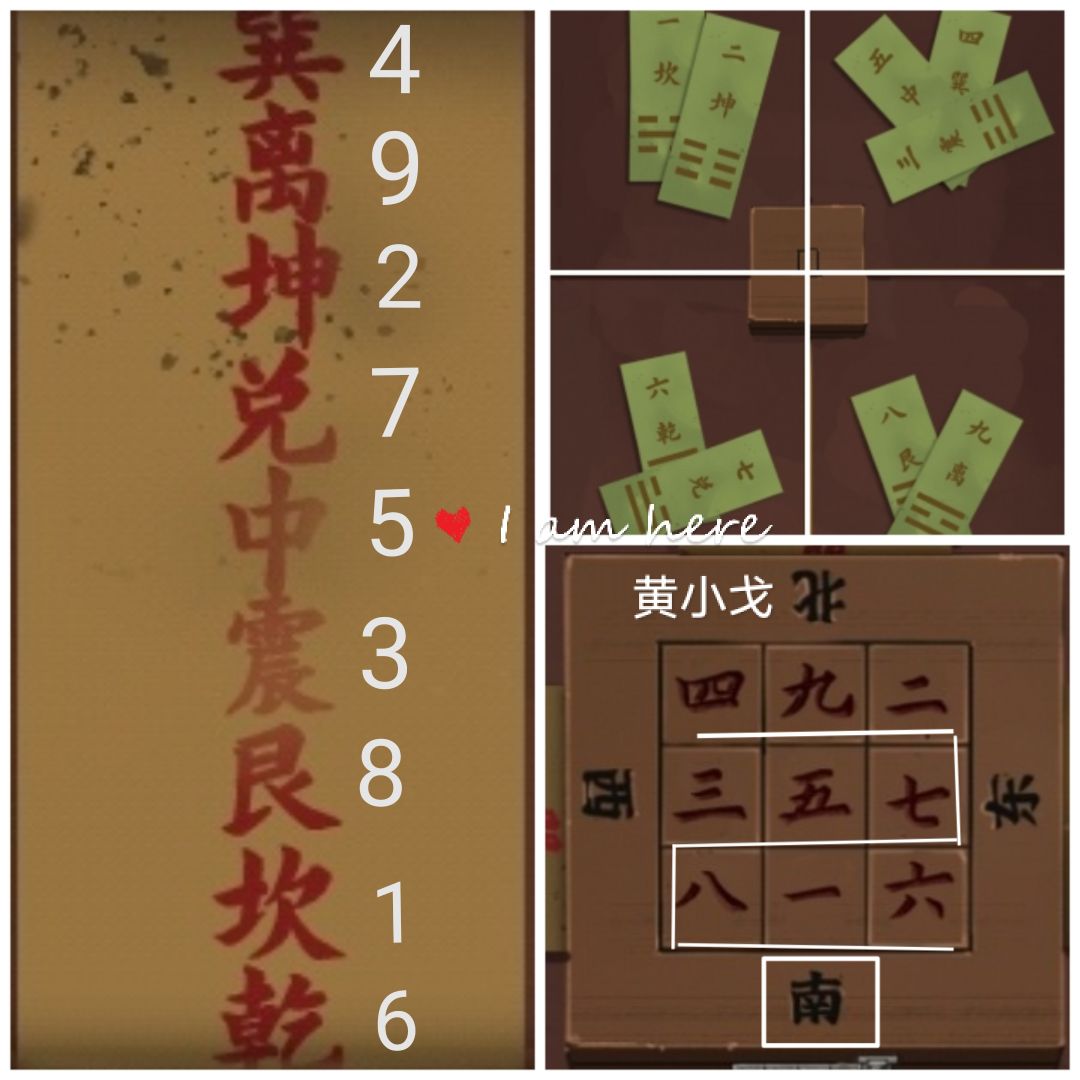 巽 4
离 9
坤 2
兑 7
中 5
I am here
震 3
艮 8
坎 1
乾 6
一 坎
二 坤
五 中
四 巽
三 震
六 乾
七 兑
八 艮
九 离
黄小戈
北
四 九 二
西
三 五 七
东
八 一 六
南